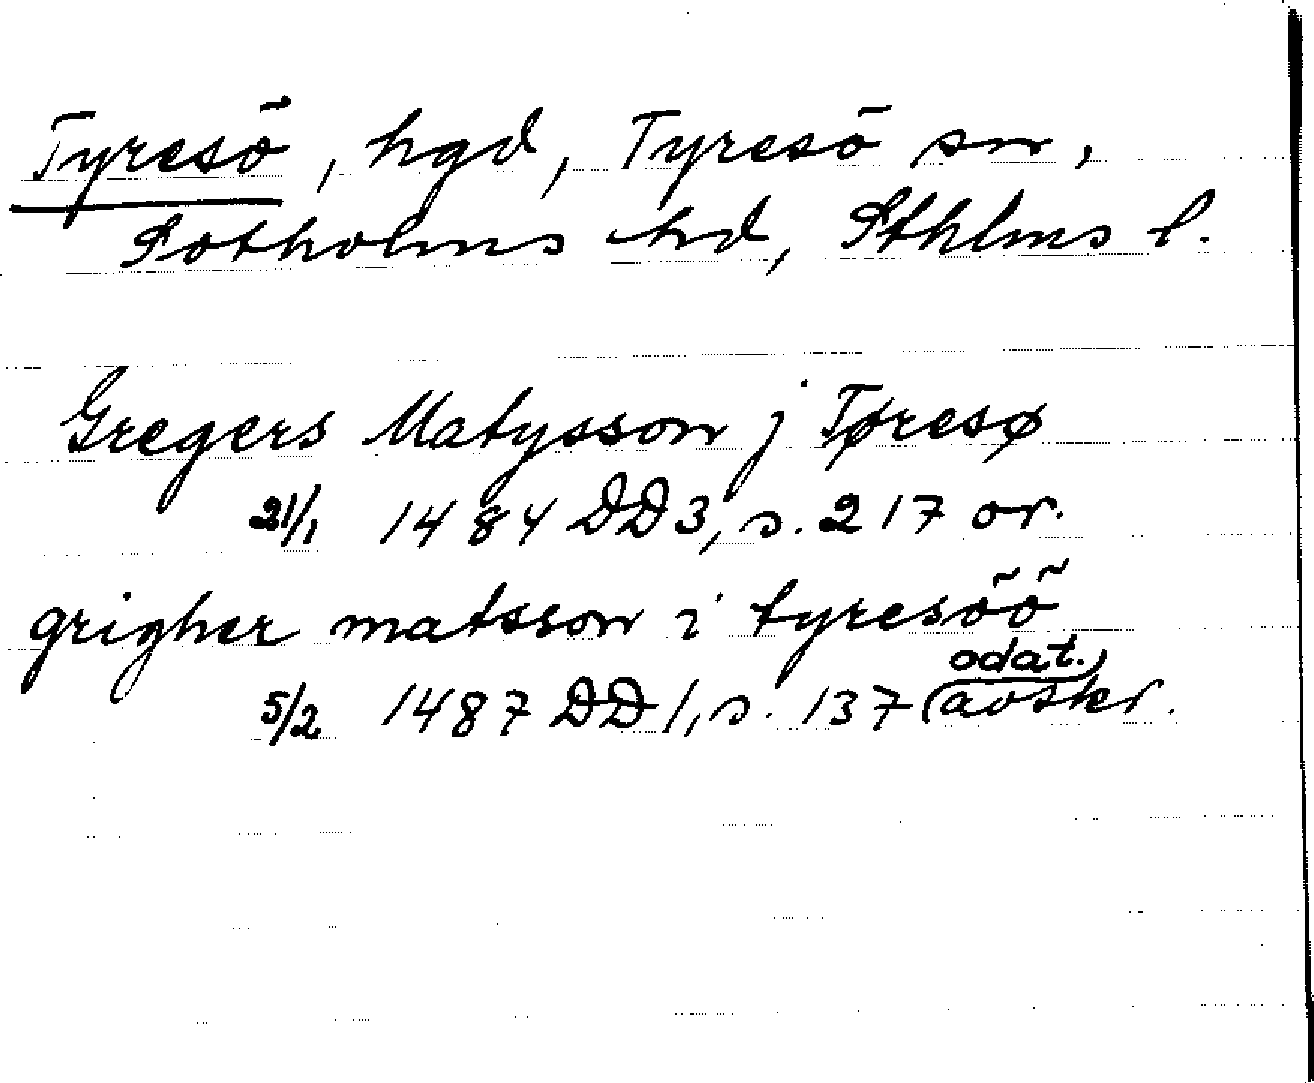 Tyresö, hgd, Tyresö sn,
Sotholms hd, Sthlms l.
Gregers Matysson j Tøresø
21/1 1484 DD3, s. 217 or.
grigher matsson i tyresöö
5/2 1487 DD1, s. 137 (odat.) avskr.